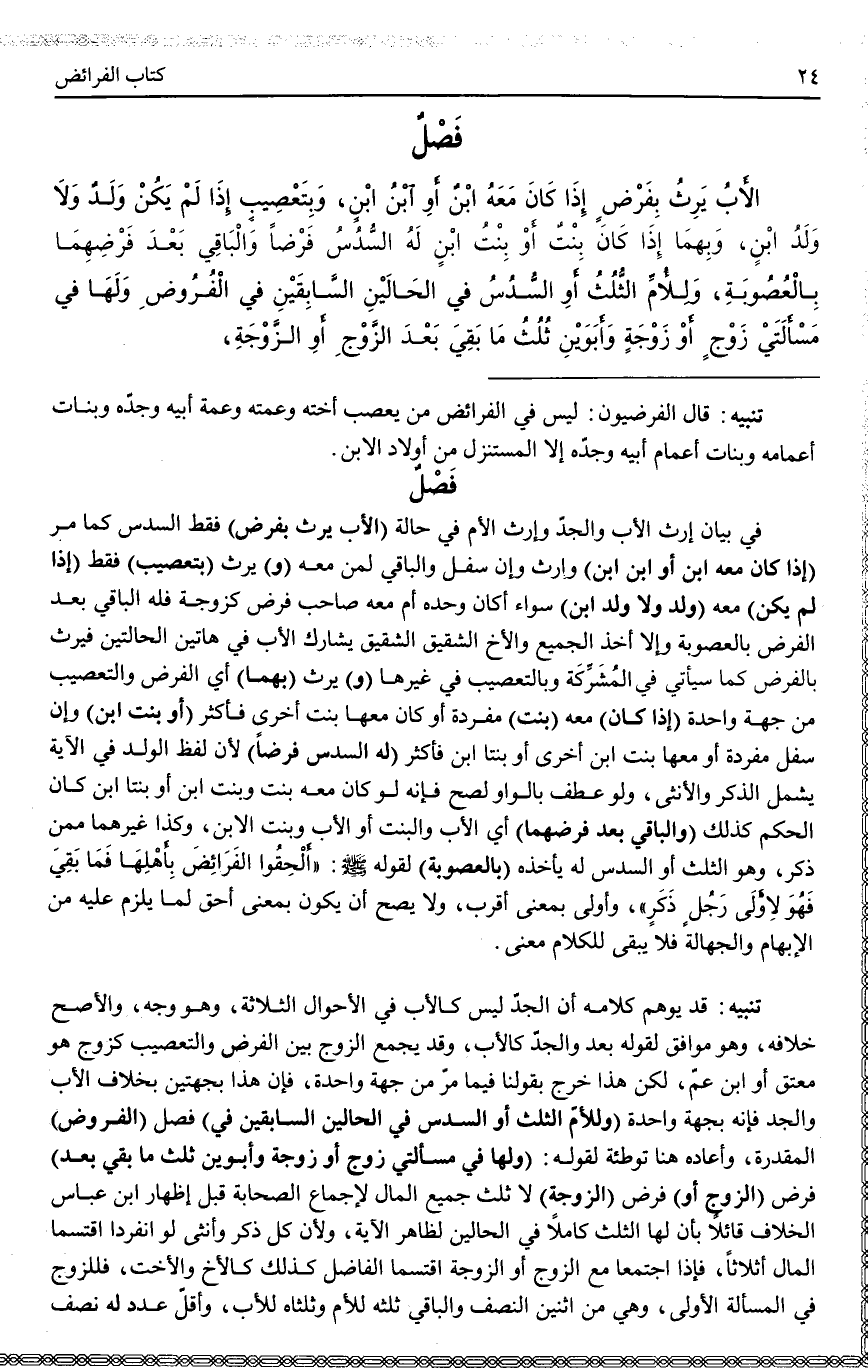 ٢٤ كتاب الفرائض
فَصْلٌ
الأَبُ يَرِثُ بِفَرْضٍ إِذَا كَانَ مَعَهُ ابْنٌ أَوِ آبْنُ ابْنٍ، وَبِتَعْصِيبٍ إِذَا لَمْ يَكُنْ وَلَدٌ وَلَا
وَلَدُ ابْنٍ، وَبِهِمَا إِذَا كَانَ بِنْتٌ أَوْ بِنْتُ ابْنٍ لَهُ السُّدُسُ فَرْضاً وَالْبَاقِي بَعْدَ فَرْضِهِمَا
بِالْعُصُوبَةِ، وَلِلْأُمِّ الثُّلُثُ أَوِ السُّدُسُ في الحَالَيْنِ السَّابِقَيْنِ في الْفُرُوضِ وَلَهَا في
مَسْأَلَتَيْ زَوْجٍ أَوْ زَوْجَةٍ وَأَبَوَيْنِ ثُلُثُ مَا بَقِيَ بَعْدَ الزَّوْجِ أَوِ الزَّوْجَةِ،
تنبيه: قال الفرضيون: ليس في الفرائض من يعصب أخته وعمته وعمة أبيه وجدّه وبنات
أعمامه وبنات أعمام أبيه وجدّه إلا المستنزل من أولاد الابن.
فَصْلٌ
في بيان إرث الأب والجدّ وإرث الأم في حالة (الأب يرث بفرض) فقط السدس كما مر
(إذا كان معه ابن أو ابن ابن) وارث وإن سفل والباقي لمن معه (و) يرث (بتعصيب) فقط (إذا
لم يكن) معه (ولد ولا ولد ابن) سواء أكان وحده أم معه صاحب فرض كزوجة فله الباقي بعد
الفرض بالعصوبة وإلا أخذ الجميع والأخ الشقيق الشقيق يشارك الأب في هاتين الحالتين فيرث
بالفرض كما سيأتي في المُشَرَّكَة وبالتعصيب في غيرها (و) يرث (بهما) أي الفرض والتعصيب
من جهة واحدة (إذا كان) معه (بنت) مفردة أو كان معها بنت أخرى فأكثر (أو بنت ابن) وإن
سفل مفردة أو معها بنت ابن أخرى أو بنتا ابن فأكثر (له السدس فرضاً) لأن لفظ الولد في الآية
يشمل الذكر والأنثى، ولو عطف بالواو لصح فإنه لو كان معه بنت وبنت ابن أو بنتا ابن كان
الحكم كذلك (والباقي بعد فرضهما) أي الأب والبنت أو الأب وبنت الابن، وكذا غيرهما ممن
ذكر، وهو الثلث أو السدس له يأخذه (بالعصوبة) لقوله ﷺ: «أَلْحِقُوا الفَرَائِضَ بِأَهْلِهَا فَمَا بَقِيَ
فَهُوَ لِأَوْلَى رَجُلٍ ذَكَرٍ»، وأولى بمعنى أقرب، ولا يصح أن يكون بمعنى أحق لما يلزم عليه من
الإبهام والجهالة فلا يبقى للكلام معنى.
تنبيه: قد يوهم كلامه أن الجدّ ليس كالأب في الأحوال الثلاثة، وهو وجه، والأصح
خلافه، وهو موافق لقوله بعد والجدّ كالأب، وقد يجمع الزوج بين الفرض والتعصيب كزوج هو
معتق أو ابن عمّ، لكن هذا خرج بقولنا فيما مرّ من جهة واحدة، فإن هذا بجهتين بخلاف الأب
والجد فإنه بجهة واحدة (وللأمّ الثلث أو السدس في الحالين السابقين في) فصل (الفروض)
المقدرة، وأعاده هنا توطئة لقوله: (ولها في مسألتي زوج أو زوجة وأبوين ثلث ما بقي بعد)
فرض (الزوج أو) فرض (الزوجة) لا ثلث جميع المال لإجماع الصحابة قبل إظهار ابن عباس
الخلاف قائلاً بأن لها الثلث كاملاً في الحالين لظاهر الآية، ولأن كل ذكر وأنثى لو انفردا اقتسما
المال أثلاثاً، فإذا اجتمعا مع الزوج أو الزوجة اقتسما الفاضل كذلك كالأخ والأخت، فللزوج
في المسألة الأولى، وهي من اثنين النصف والباقي ثلثه للأم وثلثاه للأب، وأقلّ عدد له نصف